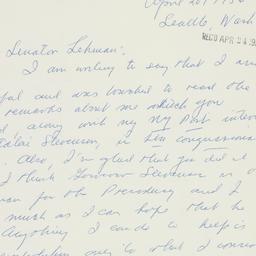 April 20, 195
Seattle, Wash
REC'D APR 24 195
Senator Lehman:
I am writing to say that I am
ful and was to read the
remarks about me which you
d along with my NY Post interv
Stevenson, in the congressiona
. Also, I'm glad that you did it
I think Governor Stevenson is a
man for the Presidency and I
much as I can hope that he
Anything I can do to keep is
over to what I conside